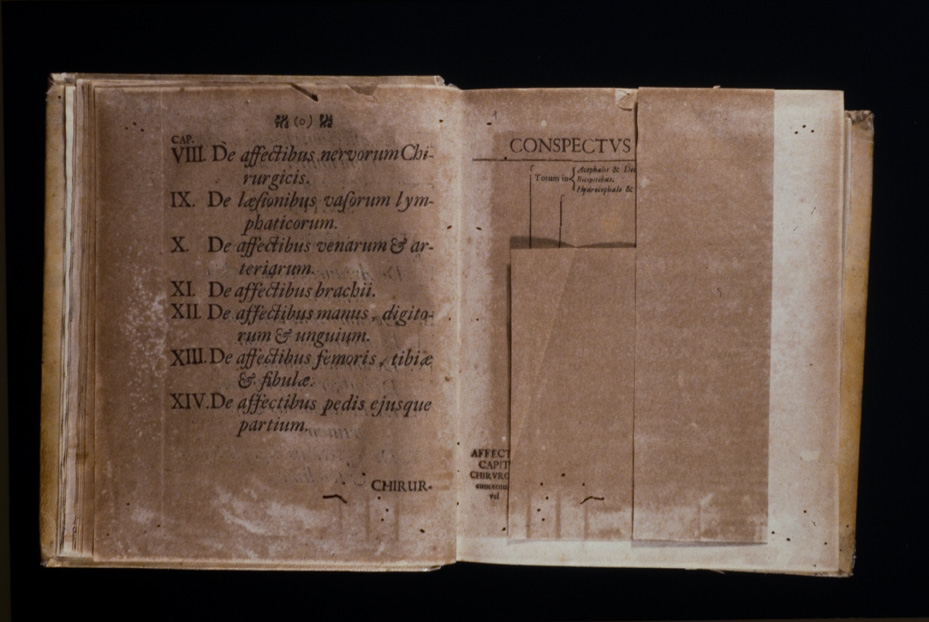 (o)
CAP.
VIII. De affectibus nervorum Chi-
rurgicis.
IX. De læsionibus vasorum lym-
phaticorum.
X. De affectibus venarum & ar-
teriarum.
XI. De affectibus brachii.
XII. De affectibus manus, digito-
rum & unguium.
XIII. De affectibus femoris, tibiæ
& fibulæ.
XIV. De affectibus pedis ejusque
partium.
CHIRUR-
1
CONSPECTVS
Totum in
Acephalis & De
Bicipitibus.
Hydrocephalo &
AFFECT
CAPIT
CHIRVRG
vel